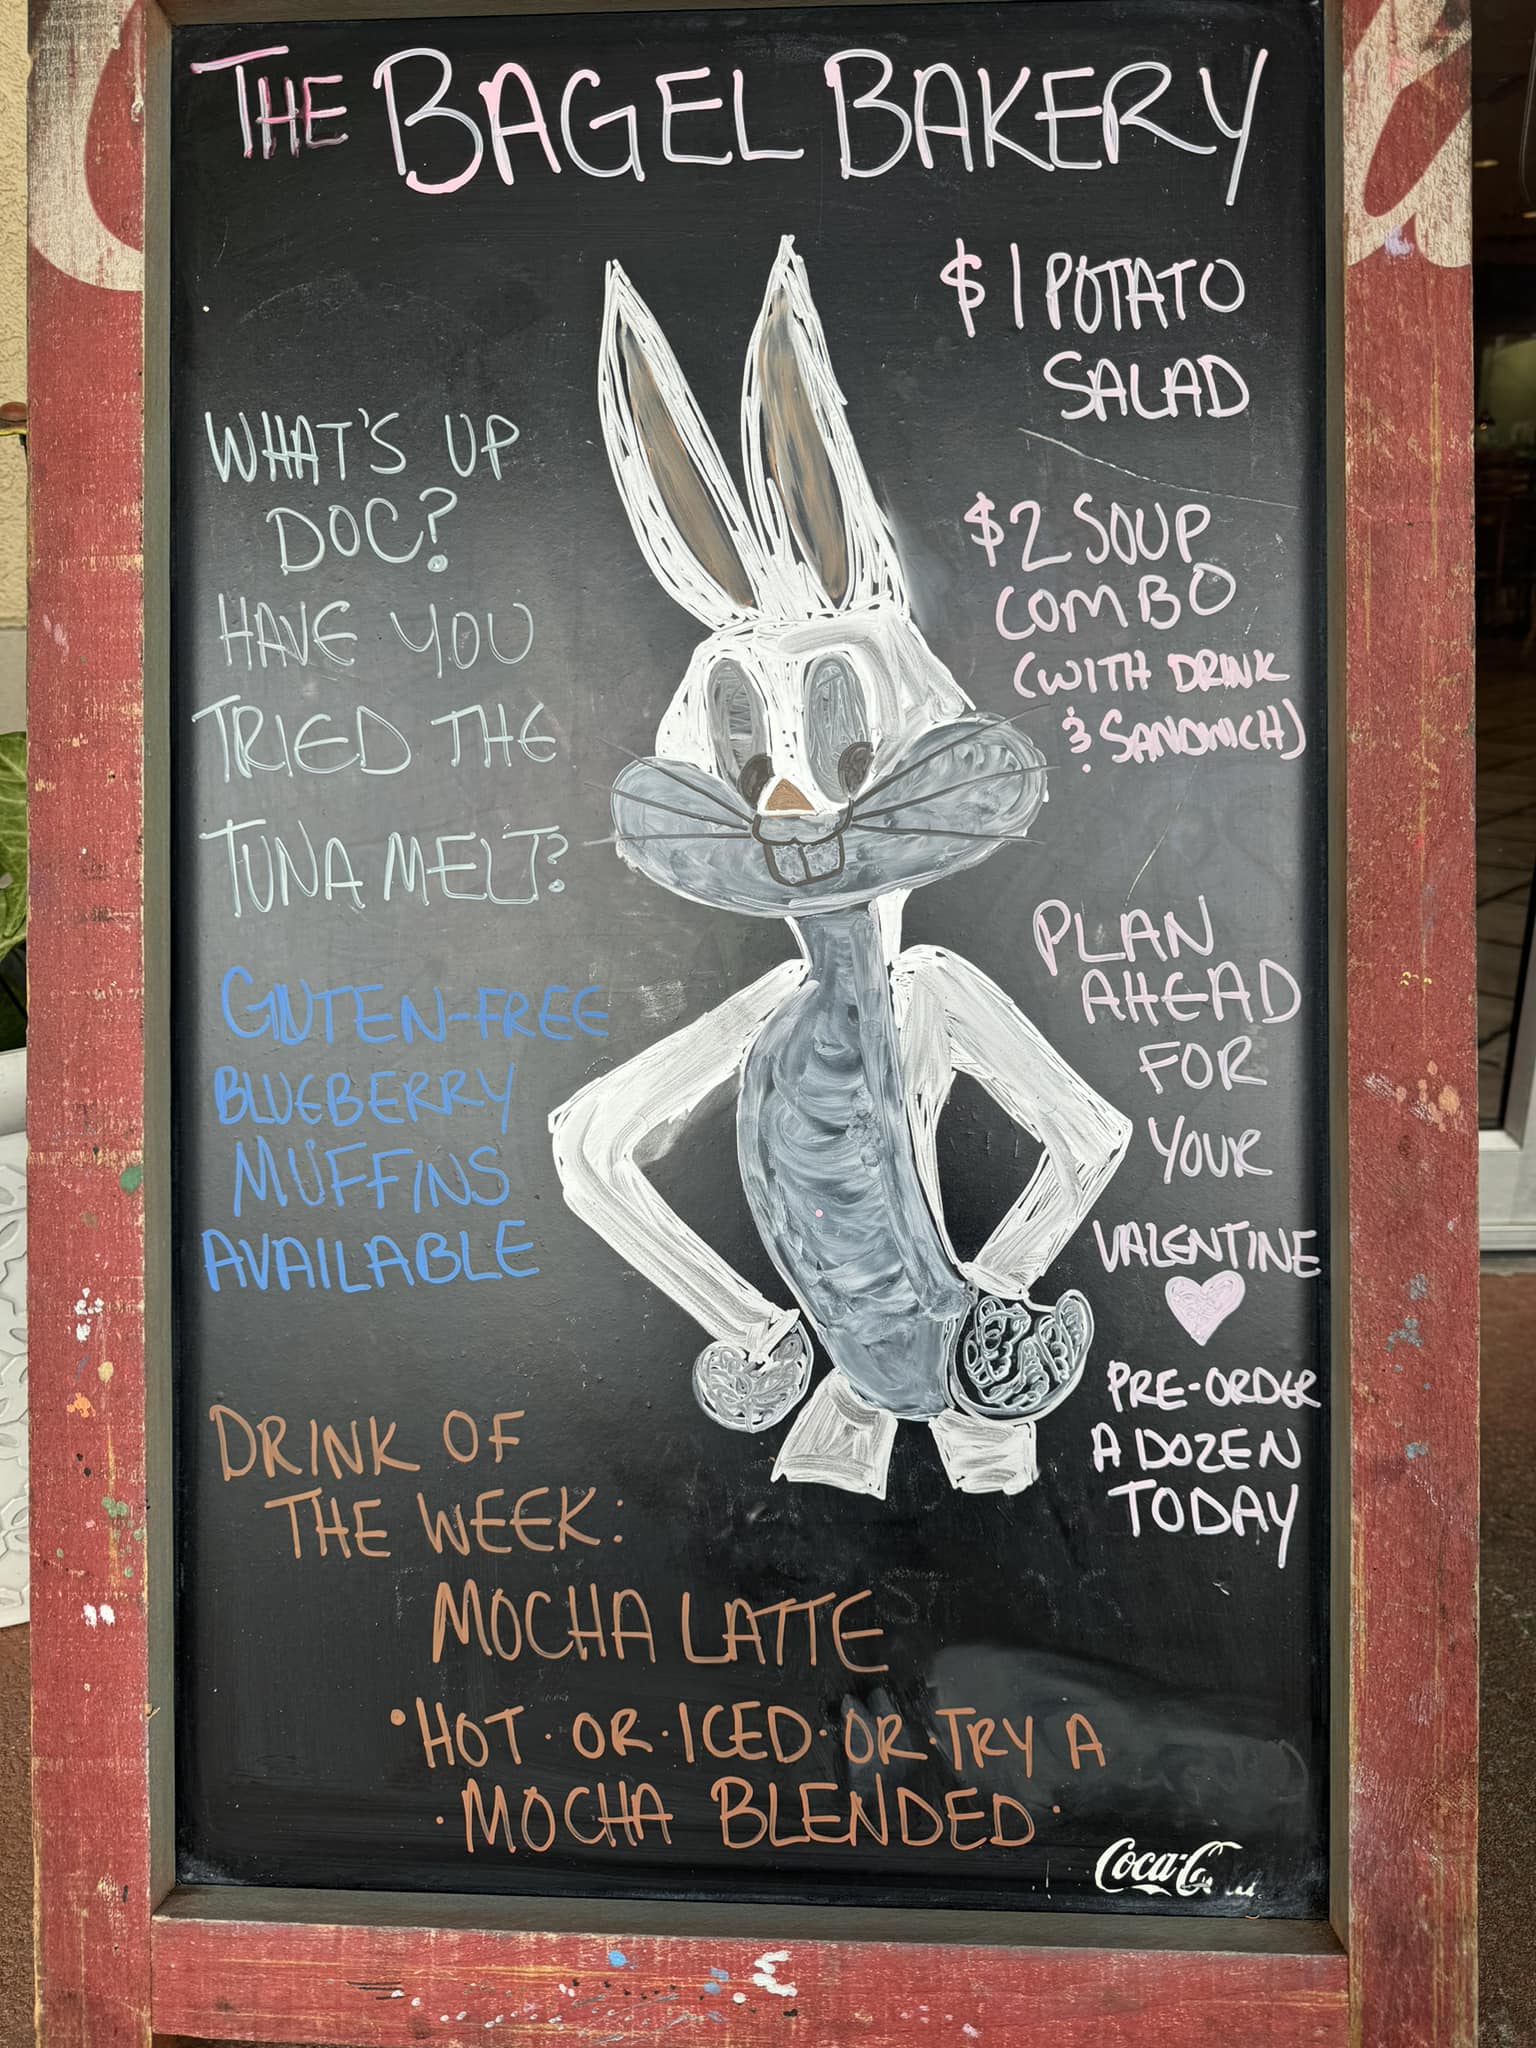 THE BAGEL BAKERY
WHAT'S UP
DOC?
HAVE YOU
TRIED THE
TUNA MELT?
GLUTEN-FREE
BLUEBERRY
MUFFINS
AVAILABLE
$1 POTATO
SALAD
$2 SOUP
COMBO
(WITH DRINK
& SANDWICH)
PLAN
AHEAD
FOR
YOUR
VALENTINE
PRE-ORDER
A DOZEN
TODAY
DRINK OF
THE WEEK:
MOCHA LATTE
•HOT·OR·ICED·OR·TRY A
·MOCHA BLENDED·